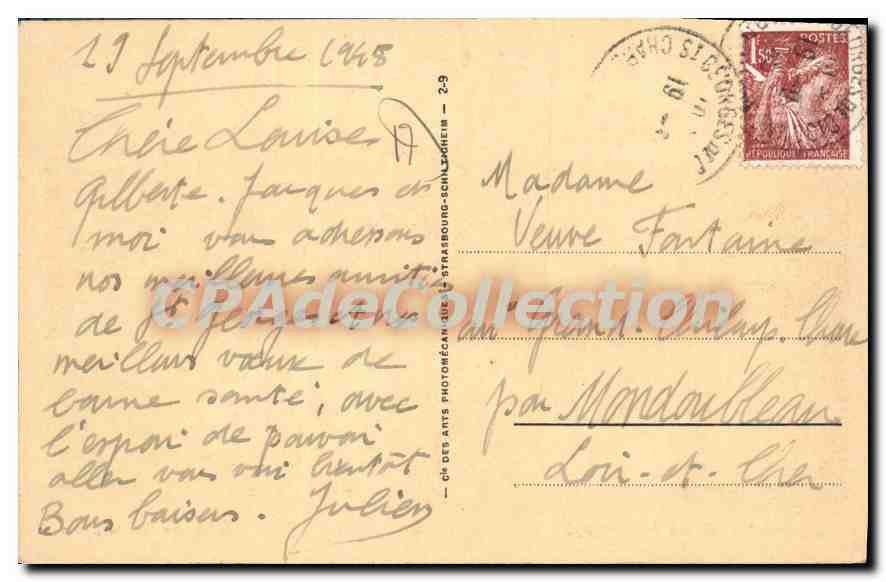 29 Septembre 1948
Chère Louise
Gilberte. Jacques et
moi vous adressons
nos meilleures amitiés
de St Georges et nos
meilleurs vœux de
bonne santé, avec
l'espoir de pouvoir
aller vous voir bientôt
Bons baisers. Julien
17
Cie DES ARTS PHOTOMÉCANIQUES — STRASBOURG-SCHILTIGHEIM — 2-9
ST GEORGES
19
1F50
POSTES
RÉPUBLIQUE FRANÇAISE
Madame
Veuve Fontaine
au Grand.
par Mondoubleau
Loir-et-Cher
CPAdeCollection